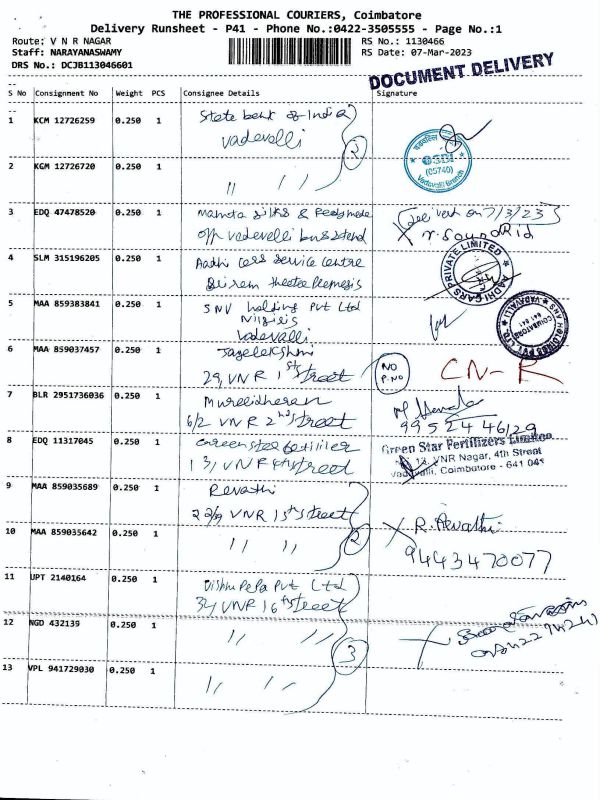 THE PROFESSIONAL COURIERS, Coimbatore
Delivery Runsheet - P41 - Phone No.:0422-3505555 - Page No.:1
Route: V N R NAGAR
Staff: NARAYANASWAMY
DRS No.: DCJB113046601
RS No.: 1130466
RS Date: 07-Mar-2023
DOCUMENT DELIVERY
S No Consignment No Weight PCS Consignee Details Signature
1 KCM 12726259 0.250 1 State bank of India
vadevalli
2
SBI
(05740)
Vadavalli Branch
2 KGM 12726720 0.250 1 " "
3 EDQ 47478520 0.250 1 Mamata silks & Readymade
opp vadevalli bus stand
7/3/23
4 SLM 315196205 0.250 1 Aadhi cars service centre
Sriram theatre
AADRI CARS PRIVATE LIMITED
5 MAA 859383841 0.250 1 SNV holding Pvt Ltd
Nilgiris
vadevalli
6 MAA 859037457 0.250 1
29, VNR 1st street
NO
P.NO
CN-R
7 BLR 2951736036 0.250 1 Mureeidheran
6/2 VNR 2nd street
99524 46129
8 EDQ 11317045 0.250 1 Green star fertiliser
13, VNR 4th street
Green Star Fertilizers Limited
13, VNR Nagar, 4th Street
Vadavalli, Coimbatore - 641 041
9 MAA 859035689 0.250 1 Revathi
22/9 VNR 15th street
10 MAA 859035642 0.250 1 " "
2
R. Revathi
9443470077
11 UPT 2140164 0.250 1 Vishnu Pvt Ltd
34 VNR 16th street
12 NGD 432139 0.250 1 " "
3
13 VPL 941729030 0.250 1 " "